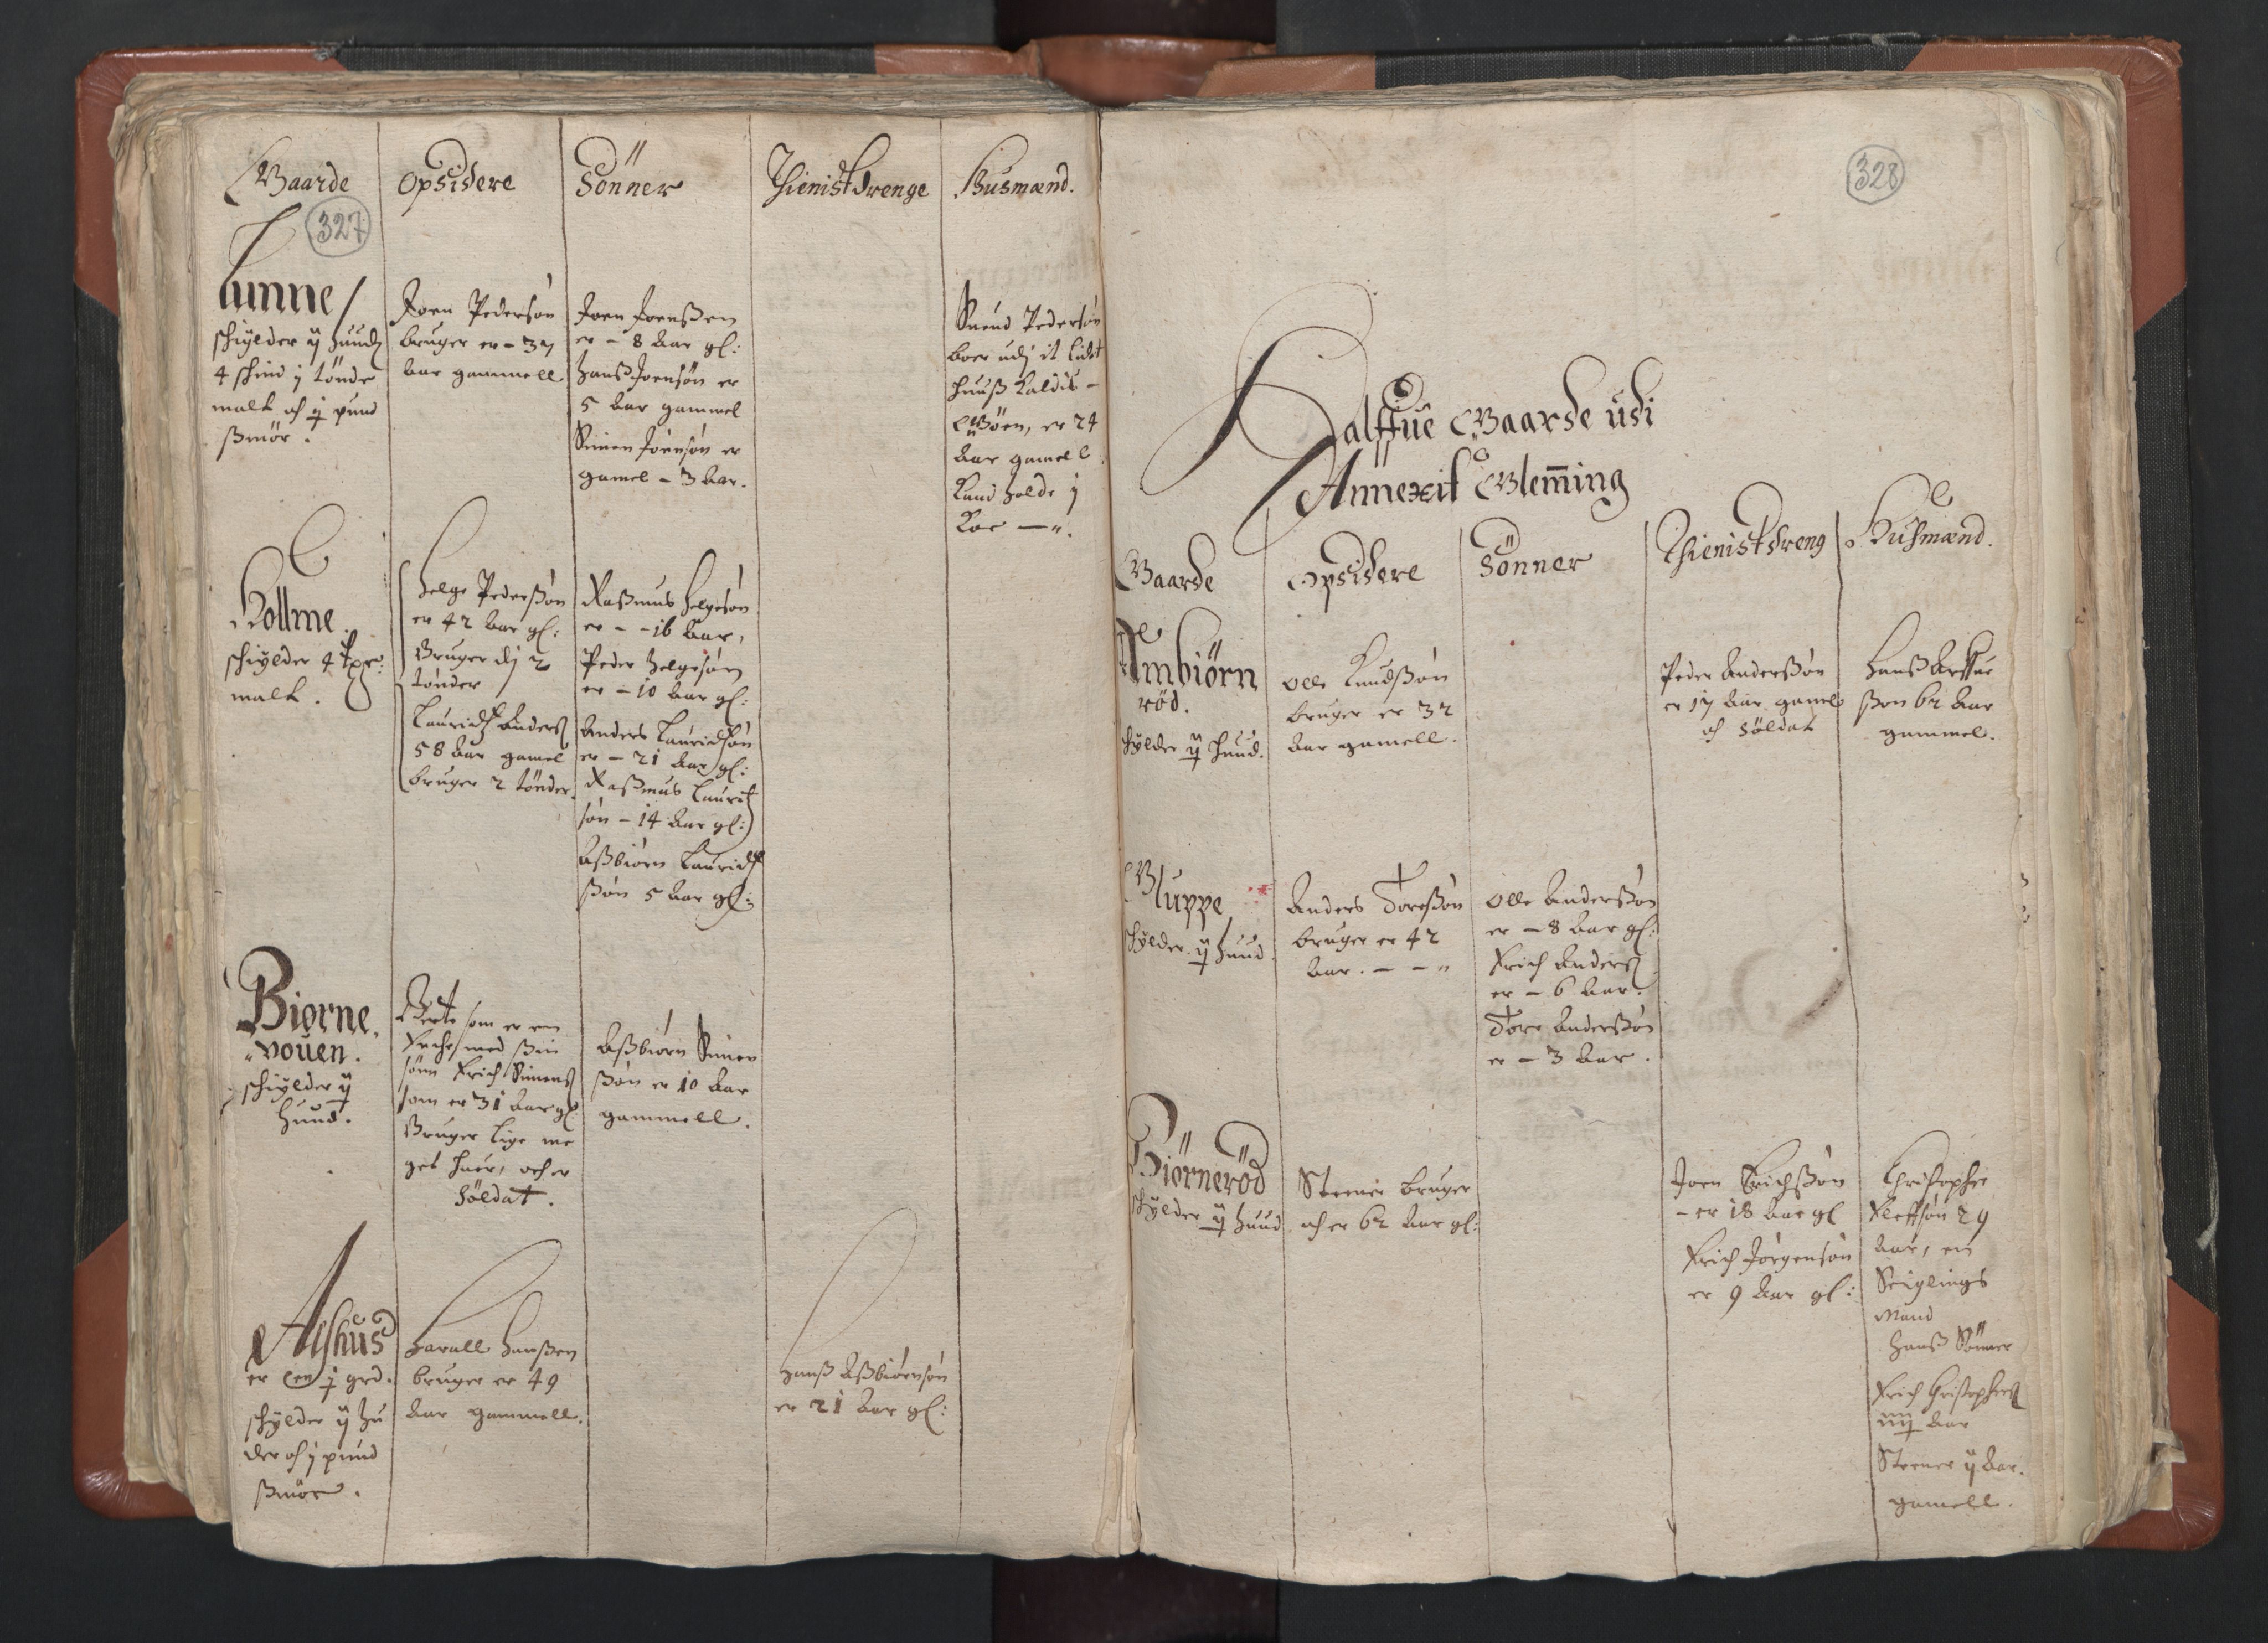 Gaarde
Opsidere
Sönner
Thienistdrenge
Husmænd.
327
Lunne /
schÿlder ij huuder
4 schind j tönde
malt och j pund
smör.
Joen Pedersøn
bruger er - 37
Aar gammell
Joen Joenssen
er - 8 Aar gl:
Hanss Joensøn er
5 Aar gammel
Simen Joensøn er
gamel - 3 Aar.
Suend Pedersøn
boer udj it lidet
huuss Kaldis -
Moen, er 24
Aar gamell
Kand holde j
Koe
Hollme.
schÿlder 4 tpr:
malt.
Helge Pederssøn
er 42 Aar gl:
Bruger dj 2
tønder
Lauridz Anders
58 Aar gamel
bruger 2 tønder.
Rassmus Helgesøn
er - - 16 Aar,
Peder Helgesøn
er - 10 Aar gl:
Anders Lauridsøn
er - 21 Aar gl:
Rassmus Laurit
søn - 14 Aar gl:
Assbiørn Lauridz
ssøn 5 Aar gl:
Biørne
vouen.
schÿlder ij
huud.
Berte som er en
Enche, med ssin
sönn Erich Simens
som er 31 Aar gl
Bruger lige me
get huer, och er
Söldat.
Assbiørn Simen
ssøn er 10 Aar
gammell.
Alshus
er en j grd.
schÿlder ij hu
der och j pund
smör.
Harall Hanssen
bruger er 49
Aar gammell.
Hanss Assbiørnsøn
er 21 Aar gl:
328
Halffue Gaarde udi
Annexit Glem̄ing
Gaarde
Opsidere
Sönner
Thienistdreng
Husmænd.
Ambiörn
röd.
schÿlder ij huud.
Olle Knudssøn
bruger er 32
Aar gamell.
Peder Anderssøn
er 17 Aar gamel
och Söldat
Hanss Arffue
ssøn 62 Aar
gammel.
Gluppe
schÿlder ij huud
Anders Toressøn
bruger er 42
Aar. - -
Olle Anderssøn
er - 8 Aar gl:
Erich Anders
er - 6 Aar.
Tore Anderssøn
er - 3 Aar.
Biörneröd
schÿlder ij huud
Steener bruger
och er 62 Aar gl:
Joen Erichssøn
- er 18 Aar gl
Erich Jörgensøn
er 9 Aar gl:
Christopher
Eleffsøn 29
Aar, en
Seiglings
Mand
Hanss Sönner
Erich Christophers
iiij Aar
Steener ij Aar.
gamell.